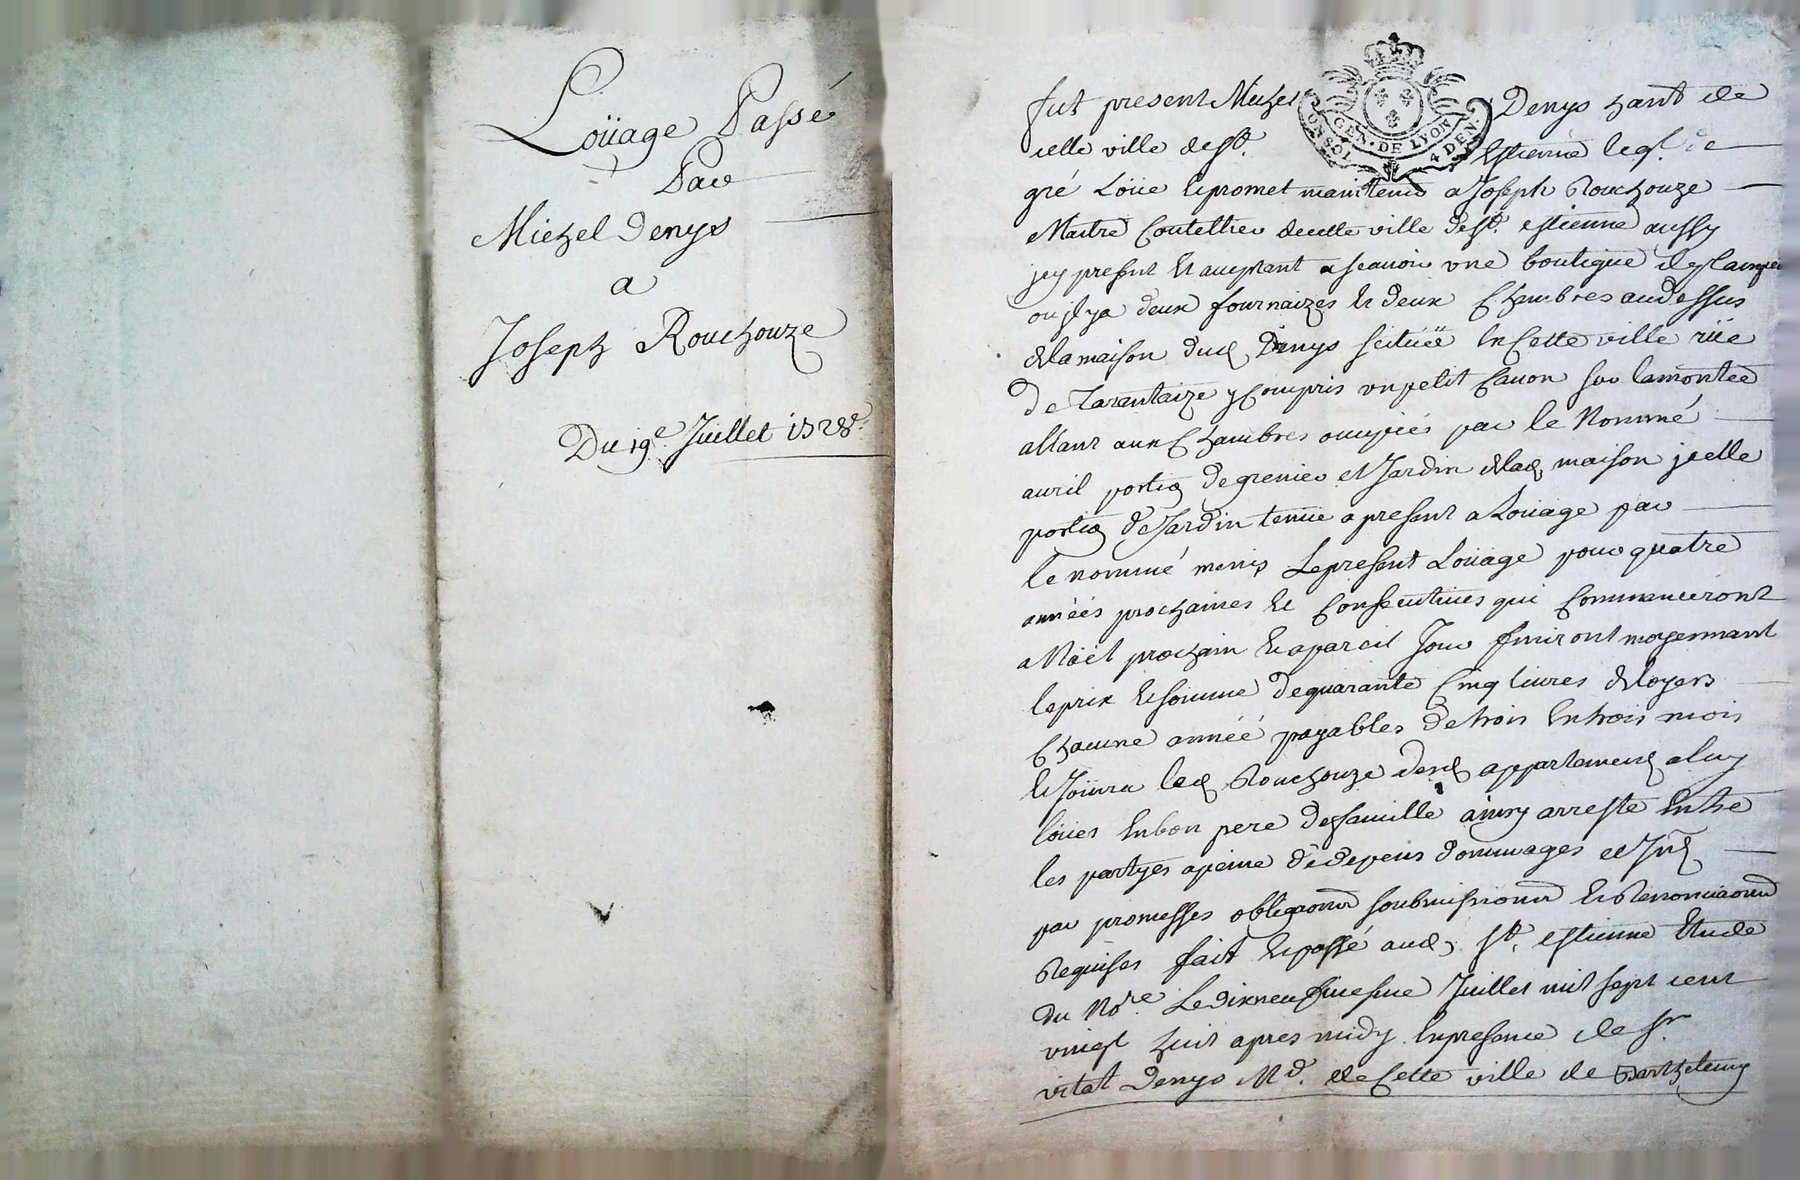 Loüage Passé
Par
Michel Denys
a
Joseph Rouchouze
Du 19e Juillet 1728.
GEN. DE LYON
4 DEN.
fut present Michel Denys hant de
cette ville de St. Estienne leql. de
gré Loüe et promet maintenir a Joseph Rouchouze
Maitre Coutellier de cette ville de St. estienne aussy
jcy present et aceptant a scauoir une boutique
ou jl y a deux fournaizes et deux Chambres au dessus
de la maison dud. Denys scituée en Cette ville rüe
de Tarantaize y Compris un petit Cauon sur la montée
allant aux Chambres ocupées par le Nommé
auril portion de grenier et Jardin de lad. maison jcelle
portion de Jardin tenue a present a Loüage par
le nommé Le present Loüage pour quatre
années prochaines et Consecutiues qui Commanceront
a Noël prochain et a pareil Jour finiront moyennant
le prix et somme de quarante Cinq liures de loyers
Chacune année payables de trois en trois mois
et Joüira led. Rouchouze desd. appartements a luy
loües en bon pere de famille ainsy arresté entre
les partyes a peine de depens dommages et
par promesses obligaons soubmissions et Renonciaons
Requises fait et passé aud. St. estienne Etude
du Nore. Le dixneufuiesme Juillet mil sept cent
vingt huit apres midy en presance de Sr
vital Denys Md. de Cette ville de Barthelemy